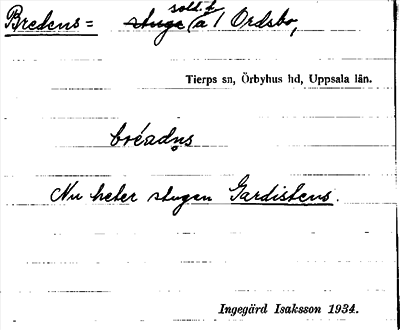 sold. t.
Bredens = stuga (å) Ordsbo,
Tierps sn, Örbyhus hd, Uppsala län.
bréadn̥s
Nu heter stugan Gardistens.
Ingegärd Isaksson 1934.